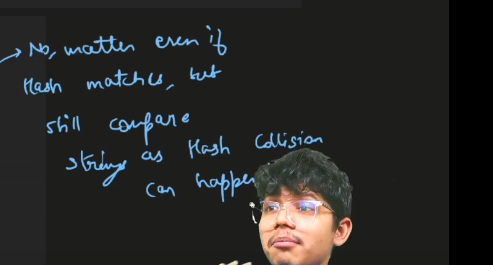 → No, matter even if
Hash matches, but
still compare
strings as Hash Collision
can happen